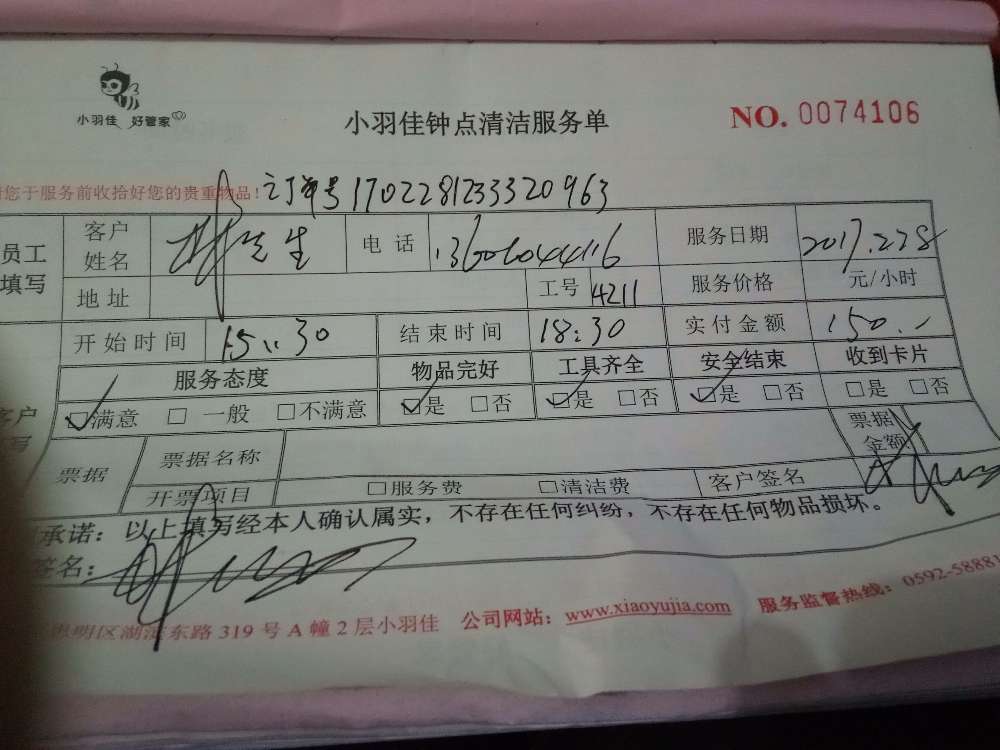 小羽佳 好管家
小羽佳钟点清洁服务单
NO. 0074106
您于服务前收拾好您的贵重物品！ 订单号 1702281233320963
员工填写 客户姓名 林先生 电话 13606044116 服务日期 2017.2.28
地址 工号 4211 服务价格 元/小时
开始时间 15:30 结束时间 18:30 实付金额 150.-
服务态度 物品完好 工具齐全 安全结束 收到卡片
☑满意 □一般 □不满意 ☑是 □否 ☑是 □否 ☑是 □否 □是 □否
票据 票据名称 票据金额
开票项目 □服务费 □清洁费 客户签名
承诺：以上填写经本人确认属实，不存在任何纠纷，不存在任何物品损坏。
签名：
思明区湖滨东路 319 号 A 幢 2 层小羽佳 公司网站：www.xiaoyujia.com 服务监督热线：0592-58881